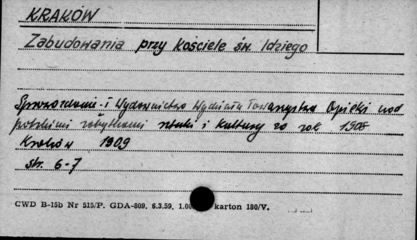 KRAKÓW
Zabudowania przy kościele św. Idziego
Sprawozdanie i Wydawnictwo Wydziału Towarzystwa Opieki nad
polskimi zabytkami sztuki i kultury za rok 1908
Kraków 1909
str. 6-7
CWD B-15b Nr 515/P. GDA-809. 6.3.59. 1.00 karton 180/V.